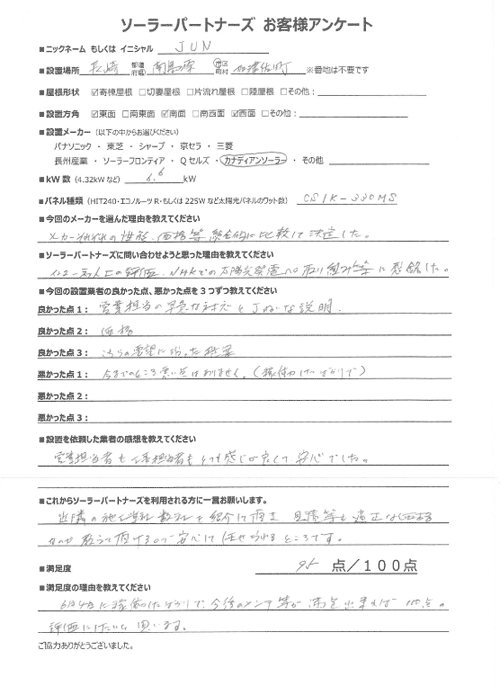 ソーラーパートナーズ お客様アンケート
■ニックネーム もしくは イニシャル JUN
■設置場所 長崎 都道府県 南島原 市区町村 加津佐町 ※番地は不要です
■屋根形状 ☑寄棟屋根 □切妻屋根 □片流れ屋根 □陸屋根 □その他:
■設置方角 ☑東面 □南東面 ☑南面 □南西面 ☑西面 □その他:
■設置メーカー (以下の中からお選びください)
パナソニック ・ 東芝 ・ シャープ ・ 京セラ ・ 三菱
長州産業 ・ ソーラーフロンティア ・ Qセルズ ・ カナディアンソーラー ・ その他
■kW 数 (4.32kW など) 6.6 kW
■パネル種類 (HIT240・エコノルーツ R・もしくは 225W など太陽光パネルのワット数) CS1K-330MS
■今回のメーカーを選んだ理由を教えてください
メーカーそれぞれの性能、価格等 総合的に比較して決定した。
■ソーラーパートナーズに問い合わせようと思った理由を教えてください
インターネット上の評価、NHKでの太陽光発電への取り組み等に
■今回の設置業者の良かった点、悪かった点を 3 つずつ教えてください
良かった点 1: 営業担当の早急な対応とていねいな説明.
良かった点 2: 価格
良かった点 3: こちらの要望に沿った提案
悪かった点 1: 今までのところ悪い点はありません。(稼働したばかりで)
悪かった点 2:
悪かった点 3:
■設置を依頼した業者の感想を教えてください
営業担当者も工事担当者もとても感じが良くて安心でした。
■これからソーラーパートナーズを利用される方に一言お願いします。
近隣の施工会社 数社を紹介して頂き 見積等も適正な価格
なのか教えて頂けるので安心して任せられるところです。
■満足度 95 点/100点
■満足度の理由を教えてください
6月4日に稼働したばかりで、今後のメンテ等が満足出来れば 100点の
評価にしたいと思います。
ご協力ありがとうございました。